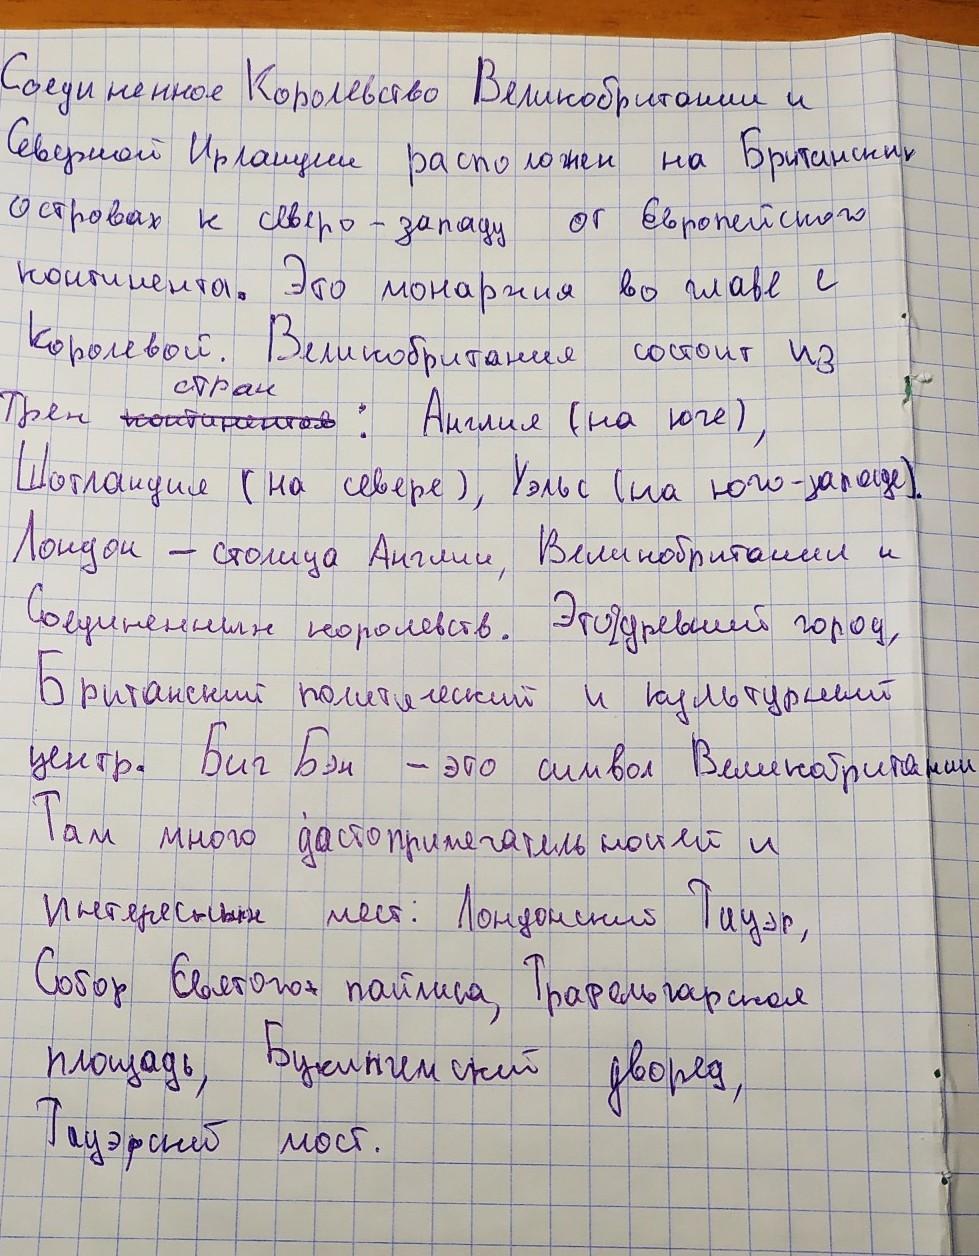 Соединенное Королевство Великобритании и
Северной Ирландии расположен на Британских
островах к северо-западу от Европейского
континента. Это монархия во главе с
Королевой. Великобритания состоит из
стран
трех континентов : Англия (на юге),
Шотландия (на севере), Уэльс (на юго-западе).
Лондон – столица Англии, Великобритании и
Соединенных королевств. Это древний город,
Британский политический и культурный
центр. Биг Бэн – это символ Великобритании
Там много дастопримечательностей и
интересных мест: Лондонский Тауэр,
Собор Святого пайлиса, Трафельгарская
площадь, Букингемский дворец,
Тауэрский мост.